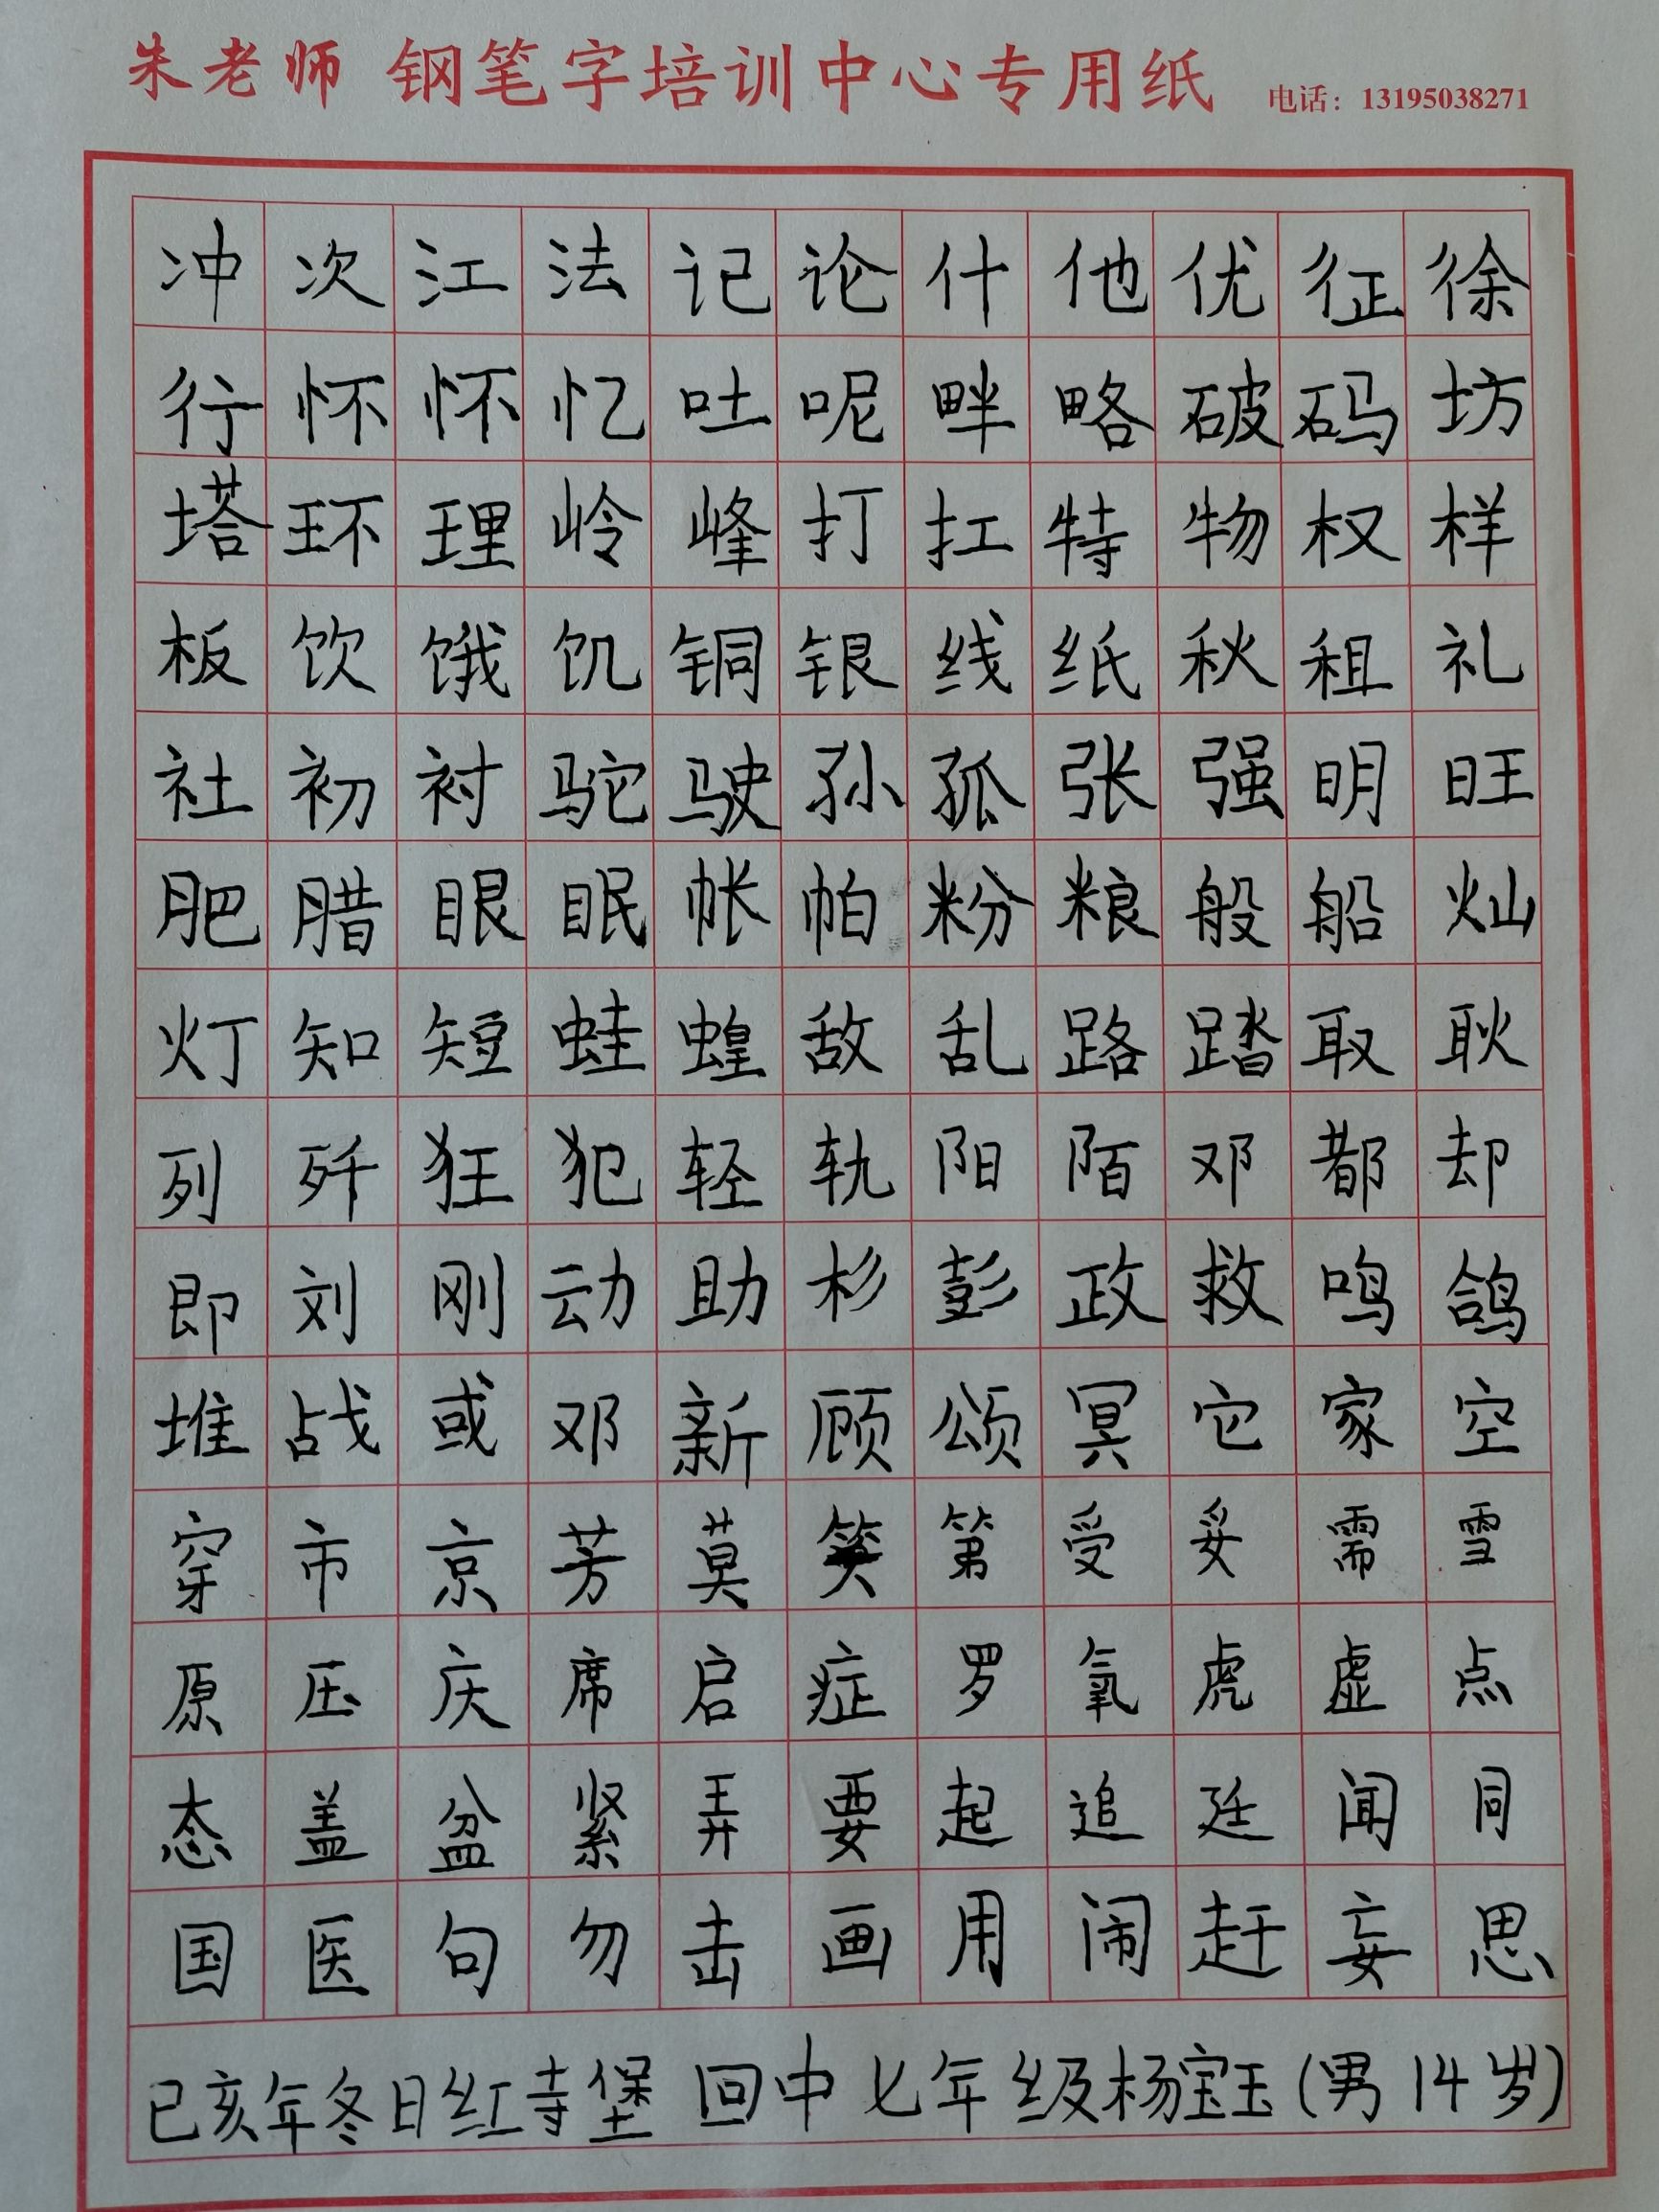 朱老师 钢笔字培训中心专用纸 电话：13195038271
冲次江法记论什他优征徐
行怀怀忆吐呢畔略破码坊
塔环理岭峰打扛特物权样
板饮饿饥铜银线纸秋租礼
社初衬驼驶孙孤张强明旺
肥腊眼眠帐帕粉粮般船灿
灯知短蛙蝗敌乱路踏取耿
列歼狂犯轻轨阳陌邓都却
即刘刚动助杉彭政救鸣鸽
堆战或邓新顾颂冥它家空
穿市京芳莫笑第受妥需雪
原压庆席启症罗氧虎虚点
态盖盆紧弄要起追廷闻同
国医句勿击画用闹赶妄思
已亥年冬日红寺堡 回中七年级杨宝玉(男14岁)